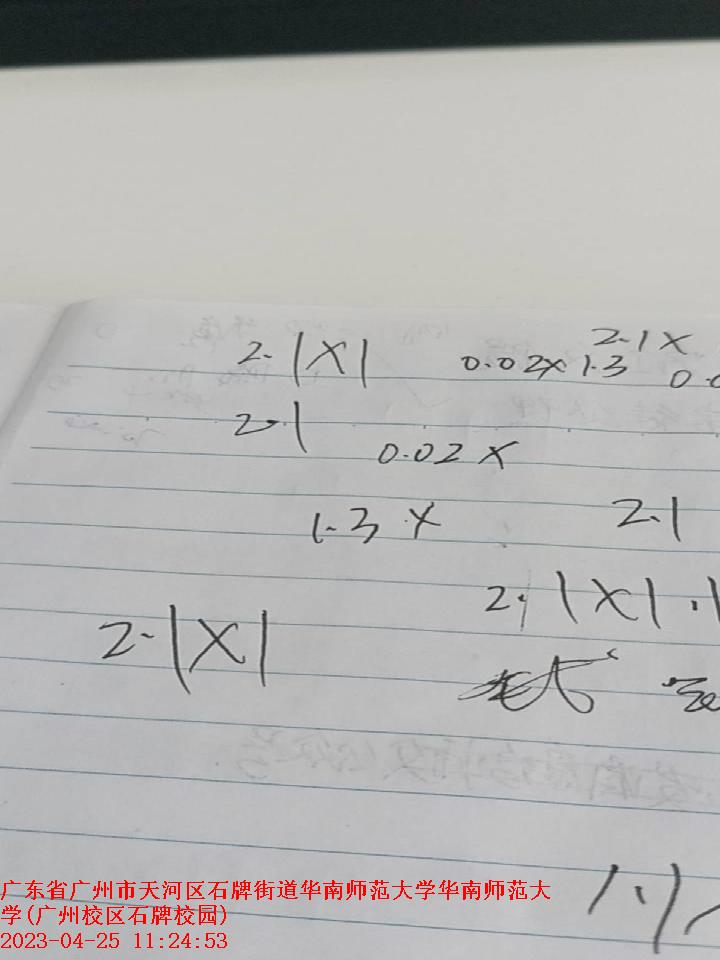 2.|X|
2.1X
0.02X1.3
2.1
0.02X
1.3X
2.1
2.|X|.
2.|X|
广东省广州市天河区石牌街道华南师范大学华南师范大
学(广州校区石牌校园)
2023-04-25 11:24:53